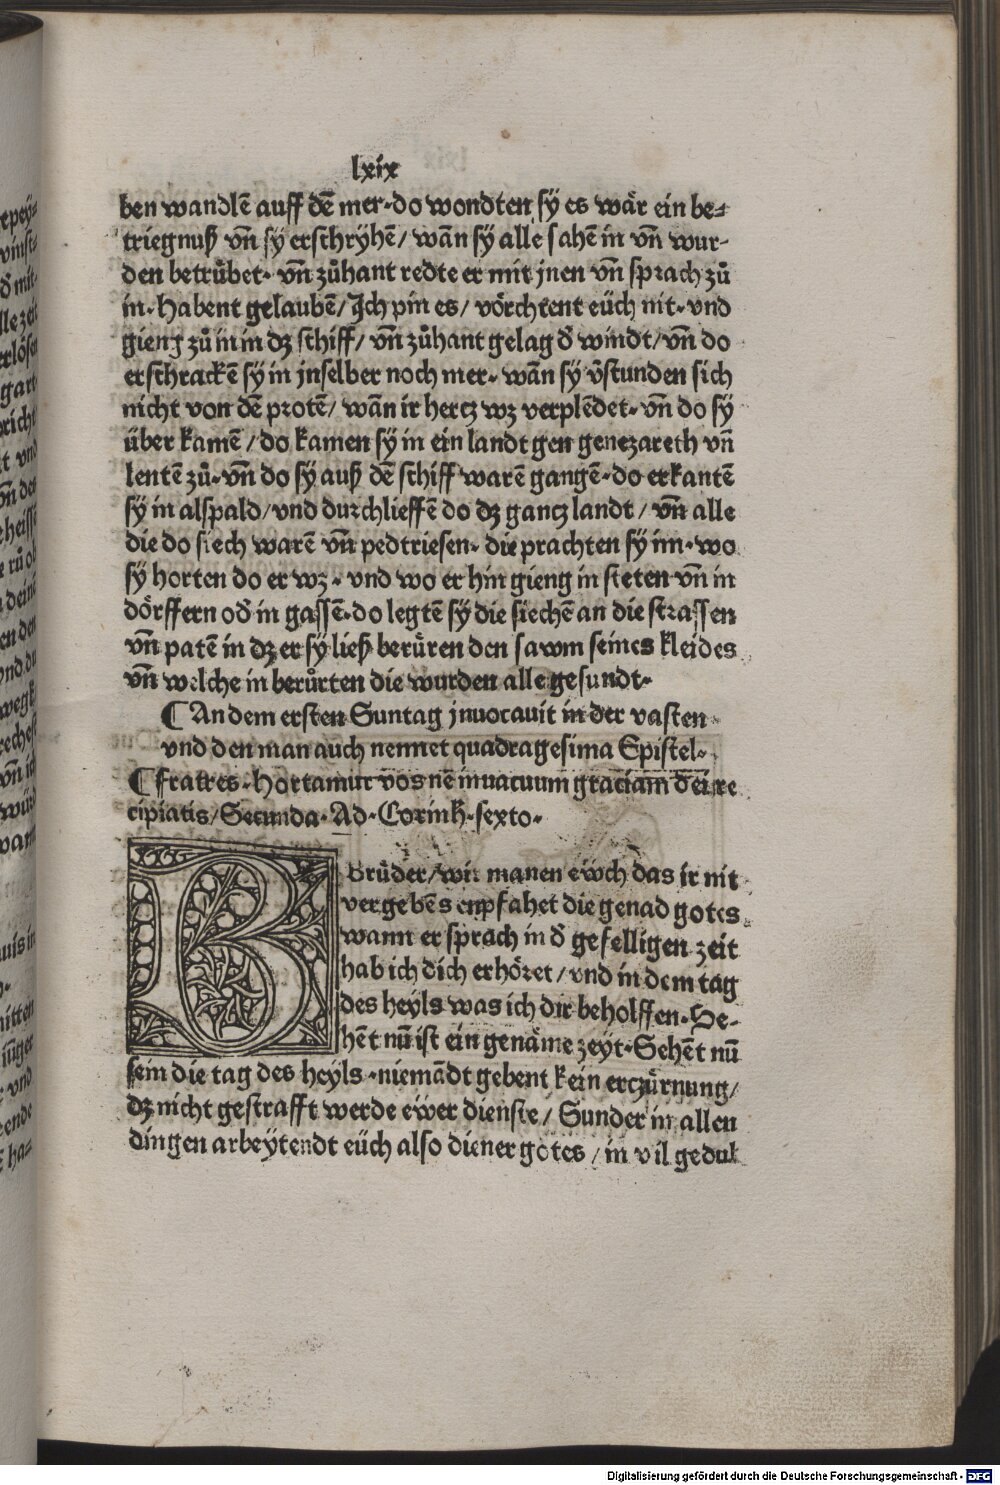 lxix
ben wandlē auff dē mer·do wondten sÿ es wȧr ein be⸗
triegnuß vn̄ sÿ erschrÿhē/ wān sÿ alle sahē in vn̄ wur⸗
den betrůbet· vn̄ zůhant redte er mit jnen vn̄ sprach zů
in·Habent gelaubē/Ich pin es/ vörchtent eüch nit·vnd
gieng zů in in dz schiff/ vn̄ zůhant gelag d̄ windt/vn̄ do
erschrackē sÿ in jnselber noch mer· wān sÿ v̊stunden sich
nicht von dē protē/ wān ir hertz wz verplēdet·vn̄ do sÿ
über kamē/do kamen sÿ in ein landt gen genezareth vn̄
lentē zů·vn̄ do sÿ auß dē schiff warē gangē·do erkantē
sÿ in alspald/vnd durchlieffē do dz gantz landt/ vn̄ alle
die do siech warē vn̄ pedtriesen· die prachten sÿ im·wo
sÿ horten do er wz· vnd wo er hin gieng in steten vn̄ in
dörffern od̄ in gassē·do legtē sÿ die siechē an die strassen
vn̄ patē in dz er sÿ ließ berůren den sawm seines kleides
vn̄ welche in berůrten die wurden alle gesundt·
¶ An dem ersten Suntag jnuocauit in der vasten
vnd den man auch nennet quadragesima Epistel·
¶ fratres·Hortamur vos nē in vacuum graciam dei re
cipiatis/Secunda·Ad·Corinth·sexto·
Brůder/wir manen ewch das ir nit
vergebēs enpfahet die genad gotes
wann er sprach in d̄ gefelligen zeit
hab ich dich erhöret/vnd in dem tag
des heyls was ich dir beholffen·Se⸗
hēt nū ist ein genȧme zeyt·Sehēt nū
sein die tag des heyls·niemādt gebent kein erczürnung/
dz nicht gestrafft werde ewer dienste/ Sunder in allen
dingen arbeÿtendt eüch also diener gotes/in vil gedul
Digitalisierung gefördert durch die Deutsche Forschungsgemeinschaft - DFG